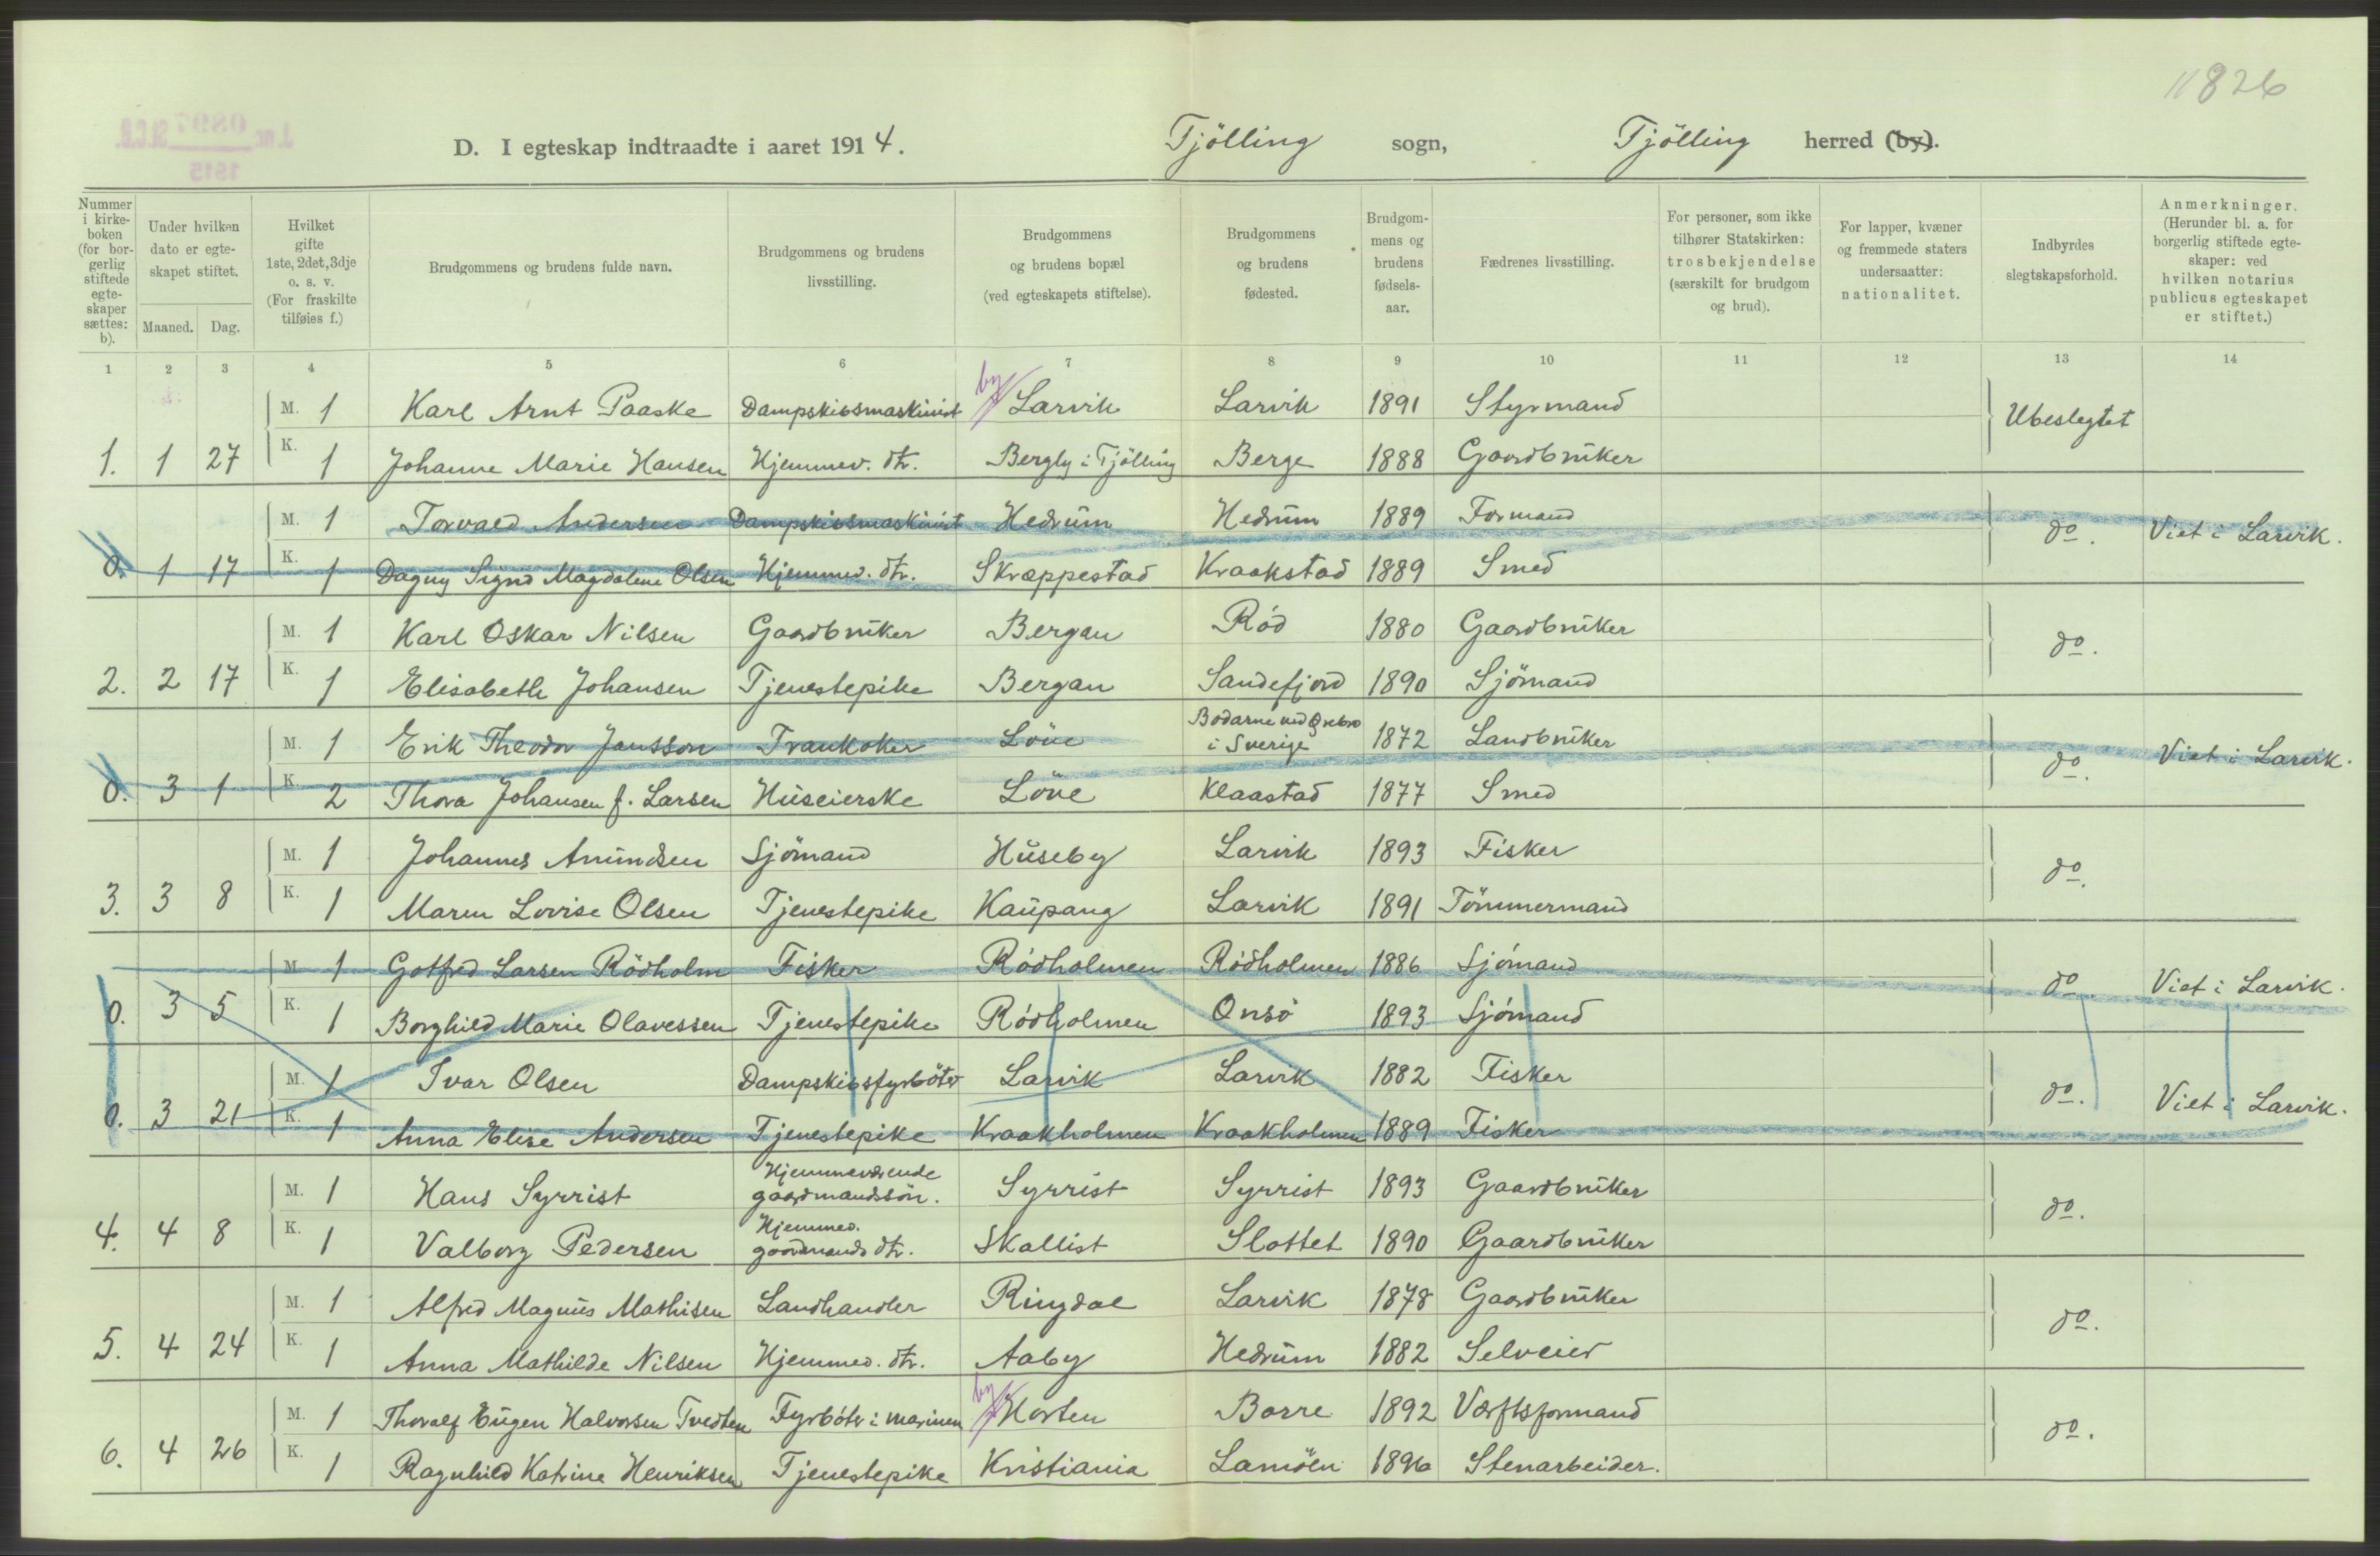 11826
D. I egteskap indtraadte i aaret 1914. Tjölling sogn, Tjölling herred (by).
Nummer i kirkeboken (for borgerlig stiftede egteskaper sættes: b). | Under hvilken dato er egteskapet stiftet. Maaned. Dag. | Hvilket gifte 1ste, 2det, 3dje o. s. v. (For fraskilte tilføies f.) | Brudgommens og brudens fulde navn. | Brudgommens og brudens livsstilling. | Brudgommens og brudens bopæl (ved egteskapets stiftelse). | Brudgommens og brudens fødested. | Brudgommens og brudens fødselsaar. | Fædrenes livsstilling. | For personer, som ikke tilhører Statskirken: trosbekjendelse (særskilt for brudgom og brud). | For lapper, kvæner og fremmede staters undersaatter: nationalitet. | Indbyrdes slegtskapsforhold. | Anmerkninger. (Herunder bl. a. for borgerlig stiftede egteskaper: ved hvilken notarius publicus egteskapet er stiftet.)
1 2 3 4 5 6 7 8 9 10 11 12 13 14
M. 1 Karl Arnt Paaske Dampskibsmaskinist by Larvik Larvik 1891 Styrmand Ubeslegtet
1. 1 27 K. 1 Johanne Marie Hansen Hjemmev. dtr. Bergly i Tjölling Berge 1888 Gaardbruker
M. 1 Torvald Andersen Dampskibsmaskinist Hedrum Hedrum 1889 Formand do. Viet i Larvik.
0. 1 17 K. 1 Dagny Sigrid Magdalene Olsen Hjemmev. dtr. Skræppestad Kraakstad 1889 Smed
M. 1 Karl Oskar Nilsen Gaardbruker Bergan Röd 1880 Gaardbruker do.
2. 2 17 K. 1 Elisabeth Johansen Tjenestepike Bergan Sandefjord 1890 Sjömand
M. 1 Erik Theodor Jansson Trankoker Löve Bodarne ved Örebro i Sverige 1872 Landbruker do. Viet i Larvik.
0. 3 1 K. 2 Thora Johansen f. Larsen Huseierske Löve Klaastad 1877 Smed
M. 1 Johannes Amundsen Sjömand Huseby Larvik 1893 Fisker do.
3. 3 8 K. 1 Maren Lovise Olsen Tjenestepike Kaupang Larvik 1891 Tömmermand
M. 1 Gotfred Larsen Rödholm Fisker Rödholmen Rödholmen 1886 Sjömand do. Viet i Larvik.
0. 3 5 K. 1 Borghild Marie Olavessen Tjenestepike Rödholmen Onsö 1893 Sjömand
M. 1 Ivar Olsen Dampskibsfyrböter Larvik Larvik 1882 Fisker do. Viet i Larvik.
0. 3 21 K. 1 Anna Elise Andersen Tjenestepike Kraakholmen Kraakholmen 1889 Fisker
M. 1 Hans Syrrist Hjemmeværende gaardmandssön. Syrrist Syrrist 1893 Gaardbruker do.
4. 4 8 K. 1 Valborg Pedersen Hjemmev. gaardmands dtr. Skallist Slottet 1890 Gaardbruker
M. 1 Alfred Magnus Mathisen Landhandler Ringdal Larvik 1878 Gaardbruker do.
5. 4 24 K. 1 Anna Mathilde Nilsen Hjemmev. dtr. Aaby Hedrum 1882 Selveier
M. 1 Thoralf Eugen Halvorsen Tvedten Fyrböter i marinen by Horten Borre 1892 Værftsformand do.
6. 4 26 K. 1 Ragnhild Katrine Henriksen Tjenestepike Kristiania Lamöen 1896 Stenarbeider.